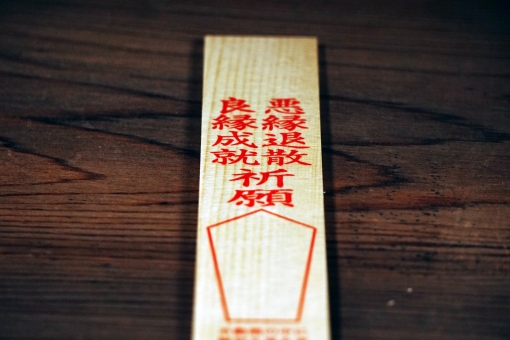 悪縁退散
良縁成就
祈願